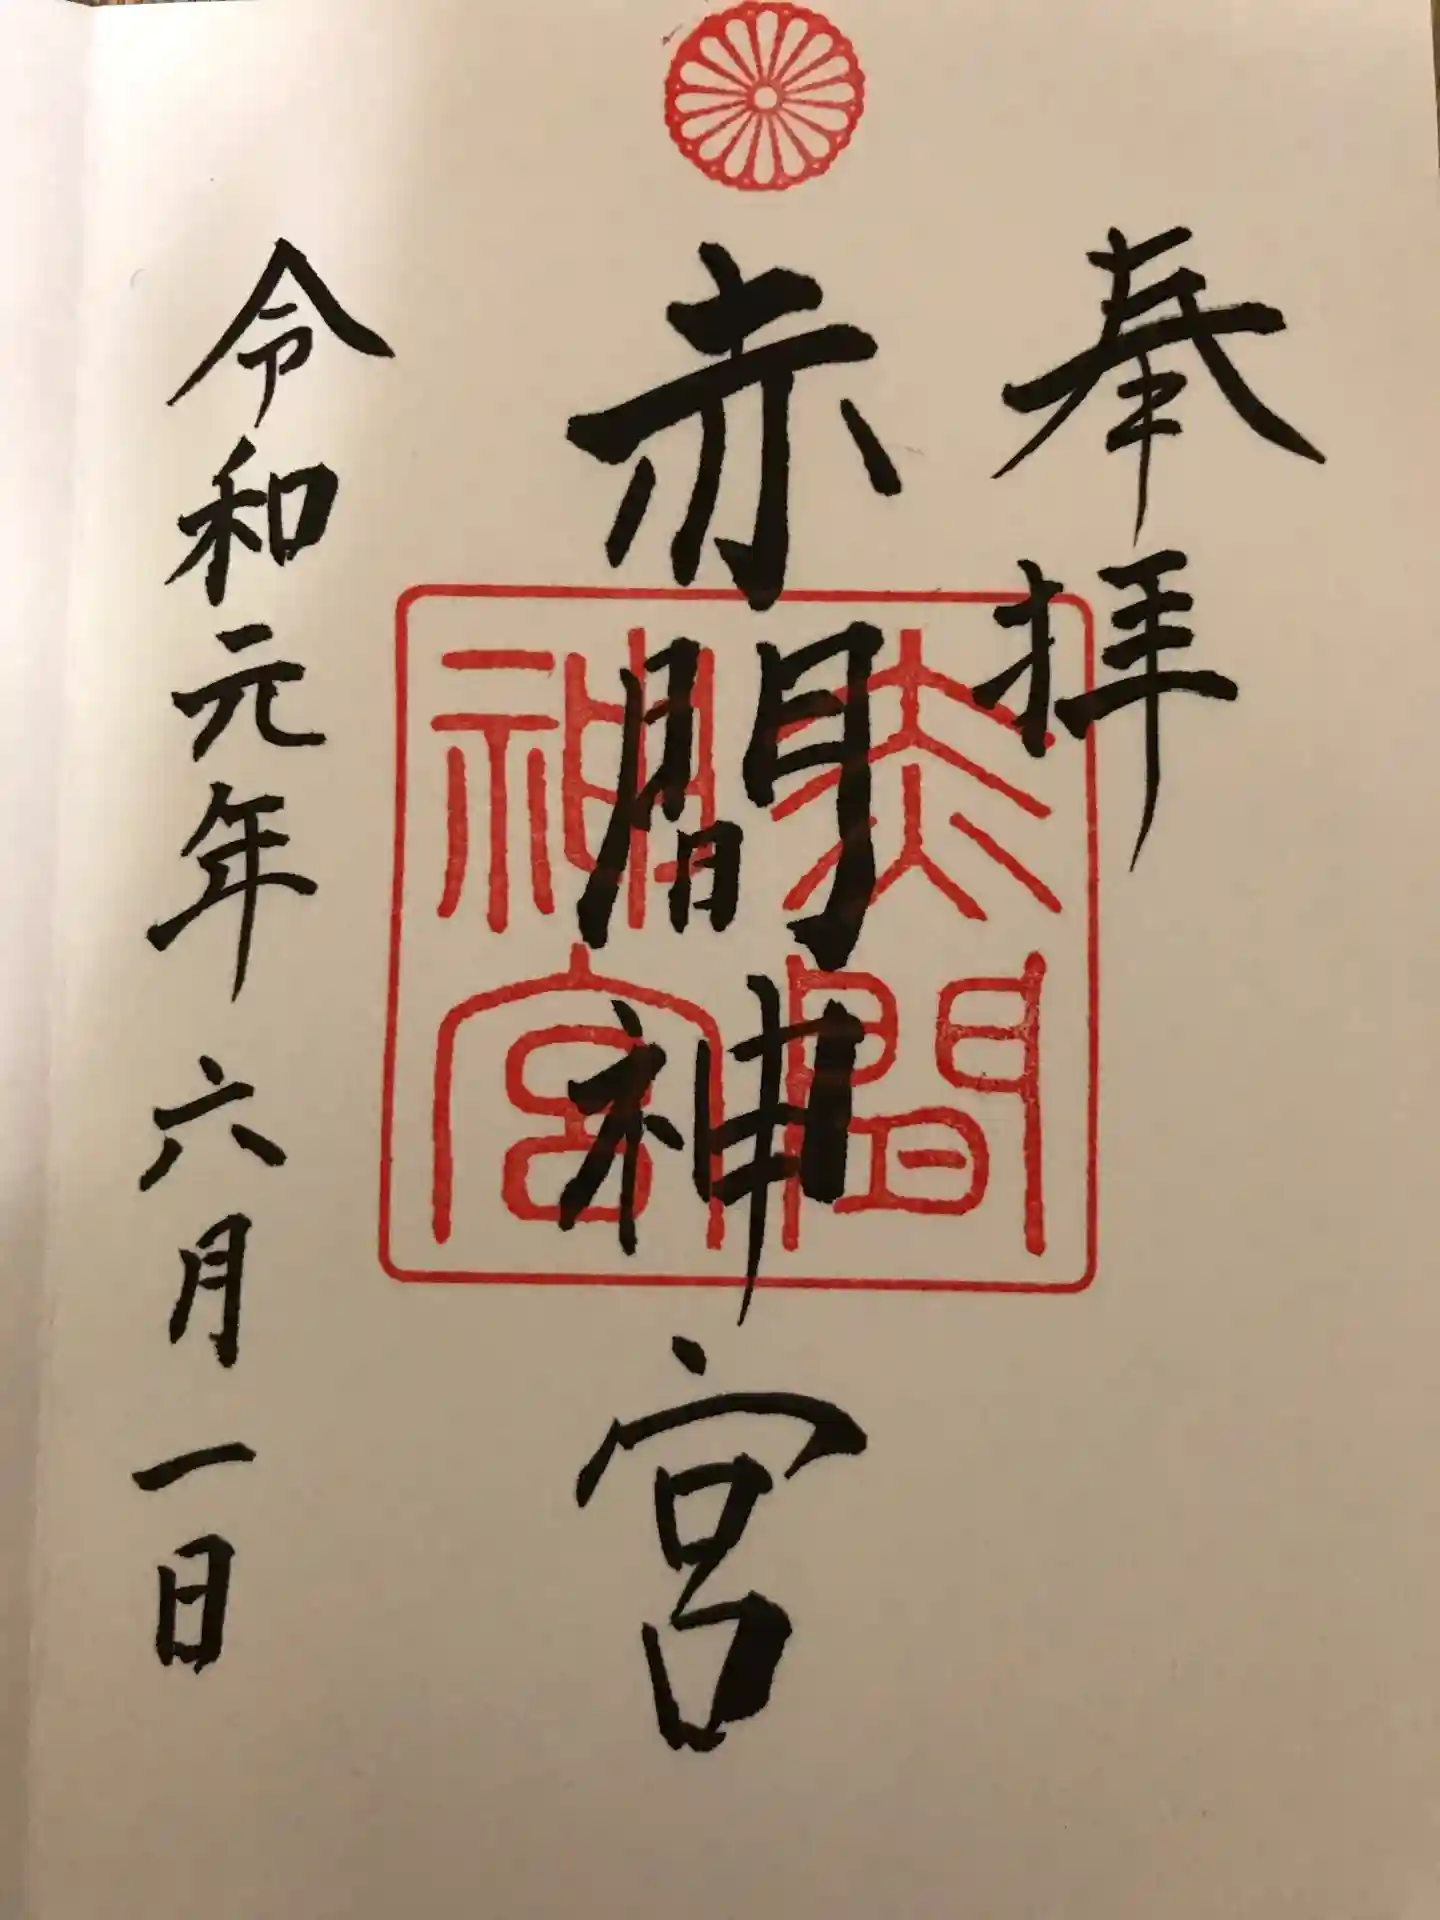 奉拝
赤間神宮
赤間
神宮
令和元年六月一日